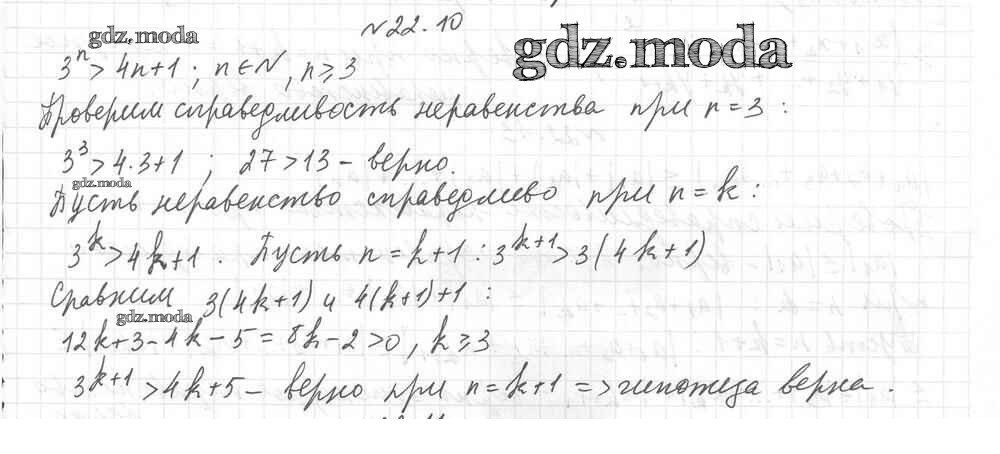 №22.10
gdz.moda
gdz.moda
3ⁿ > 4n+1 ; n ∈ N, n ⩾ 3
Проверим справедливость неравенства при n = 3 :
3³ > 4·3+1 ; 27 > 13 – верно.
gdz.moda
Пусть неравенство справедливо при n = k :
3ᵏ > 4k+1 . Пусть n = k+1 : 3ᵏ⁺¹ > 3(4k+1)
Сравним 3(4k+1) и 4(k+1)+1 :
gdz.moda
12k+3-4k-5 = 8k-2 > 0, k ⩾ 3
3ᵏ⁺¹ > 4k+5 – верно при n = k+1 => гипотеза верна .